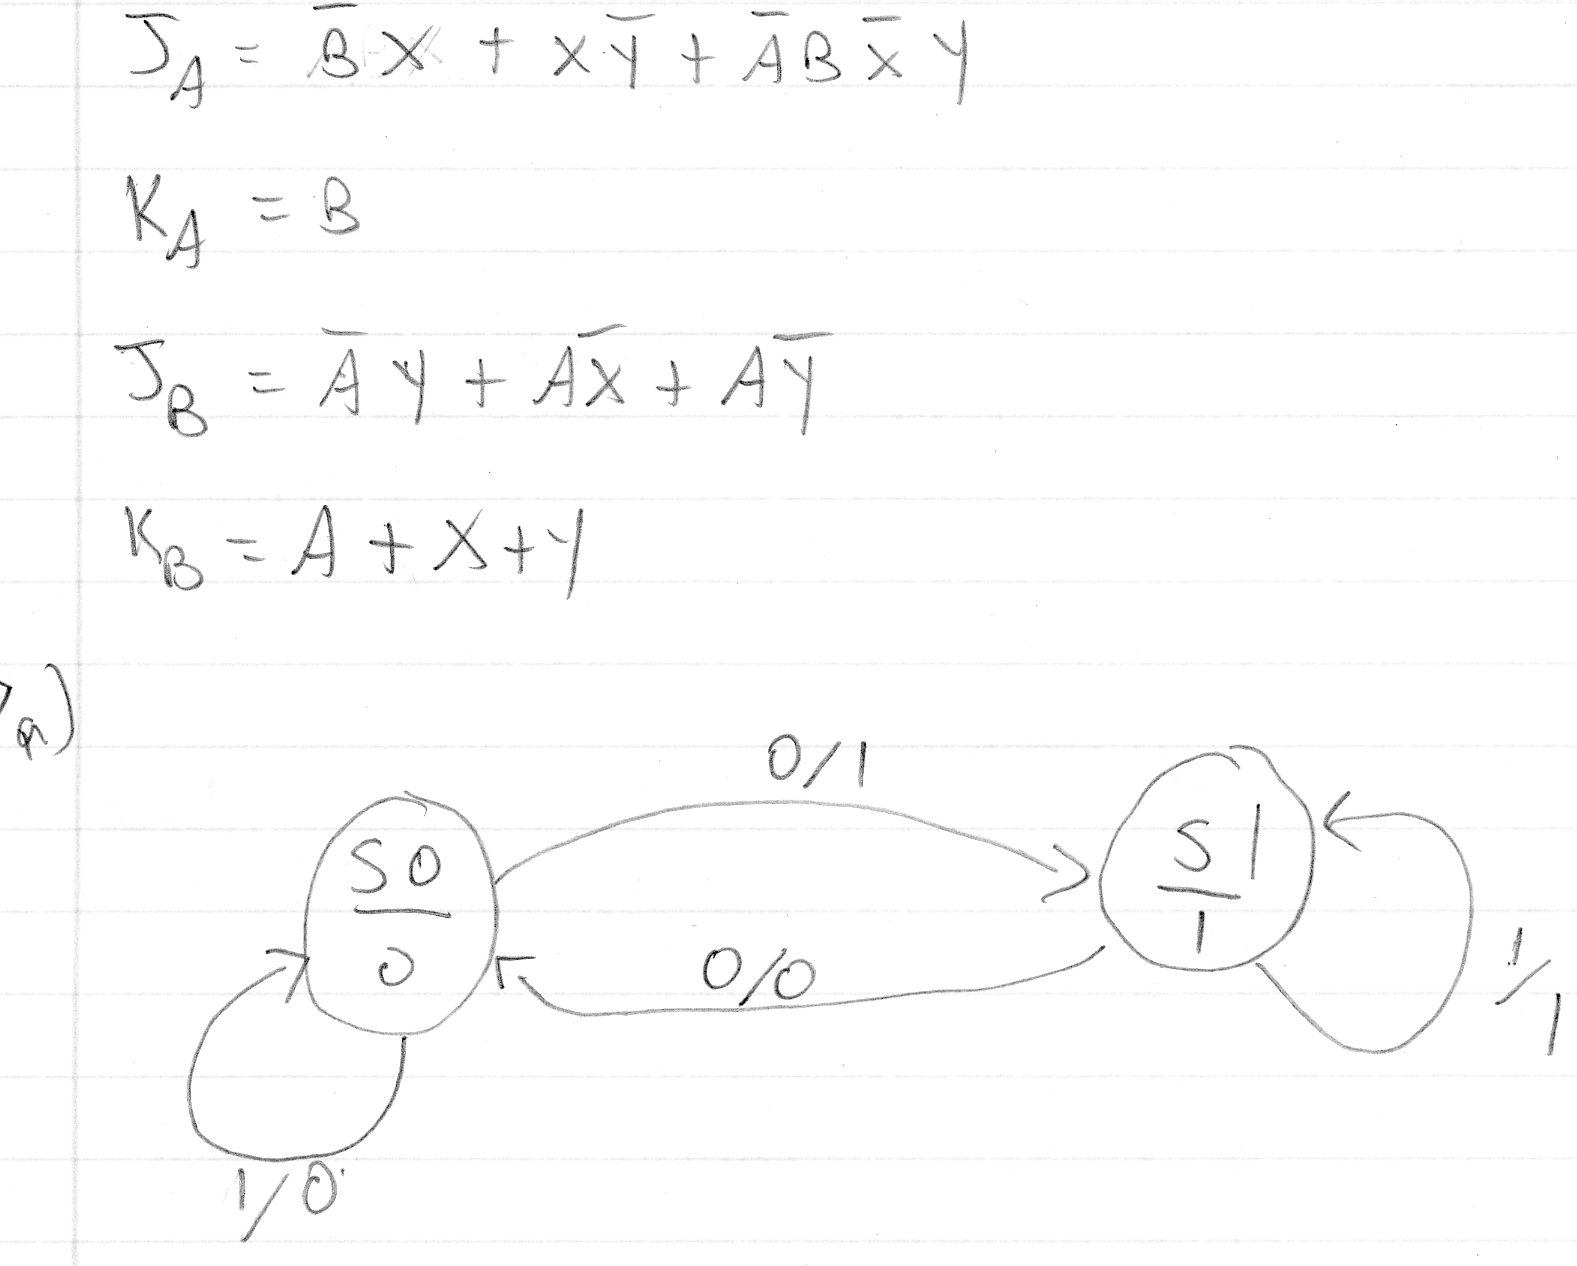 J_A = B̅X + XY̅ + A̅BX̅Y
K_A = B
J_B = A̅Y + AX̅ + AY̅
K_B = A + X + Y
a)
0/1
S0
0
S1
1
0/0
1/1
1/0